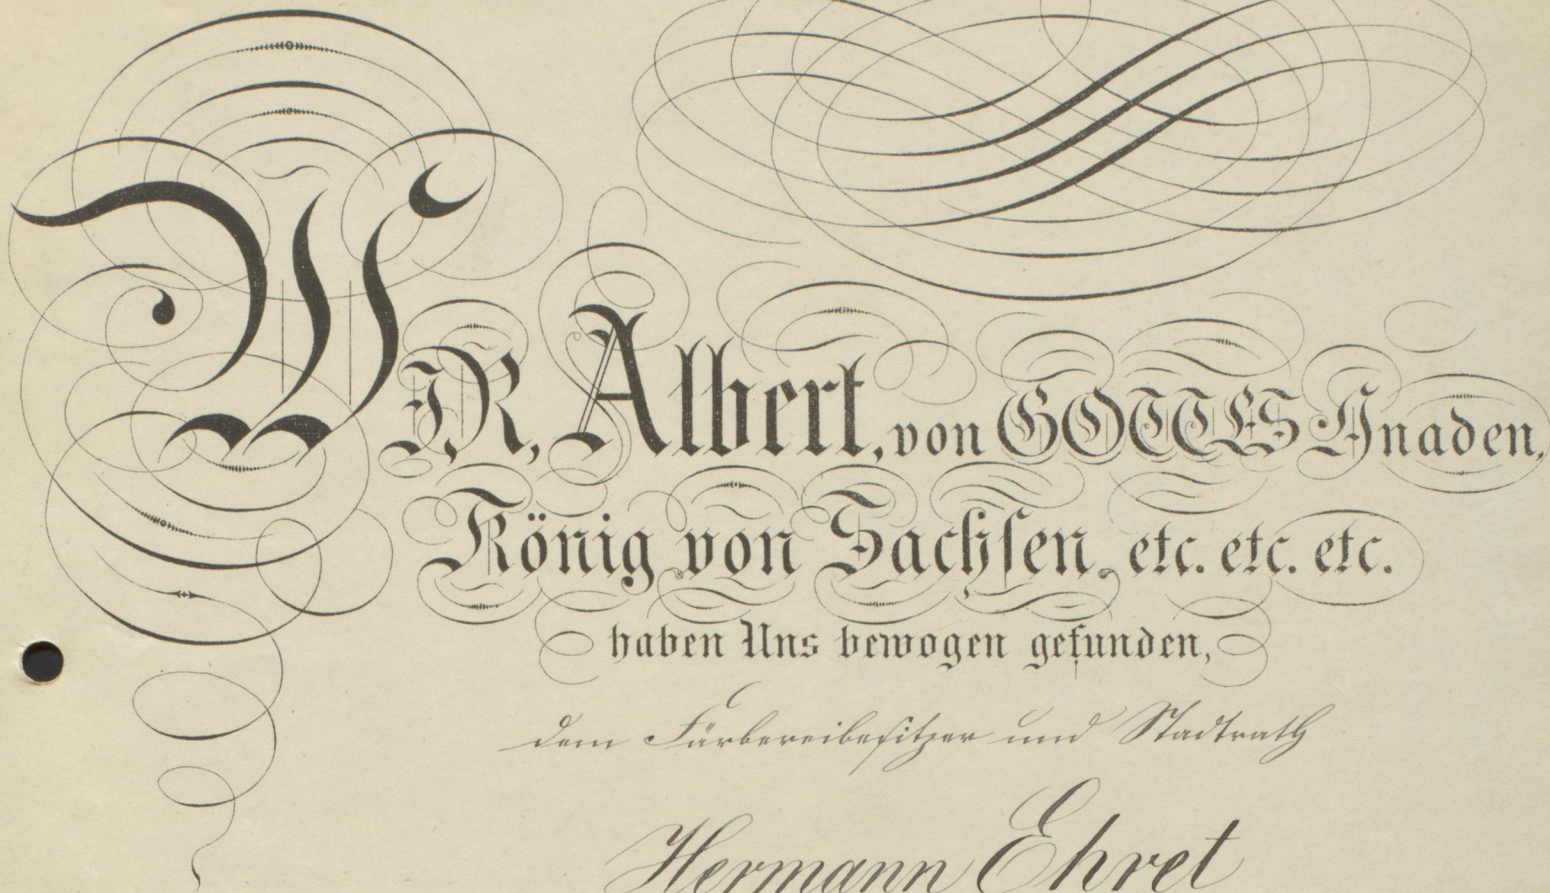 WIR, Albert, von GOTTES Gnaden,
König von Sachſen, etc. etc. etc.
haben Uns bewogen gefunden,
dem Färbereibeſitzer und Stadtrath
Hermann Ehret